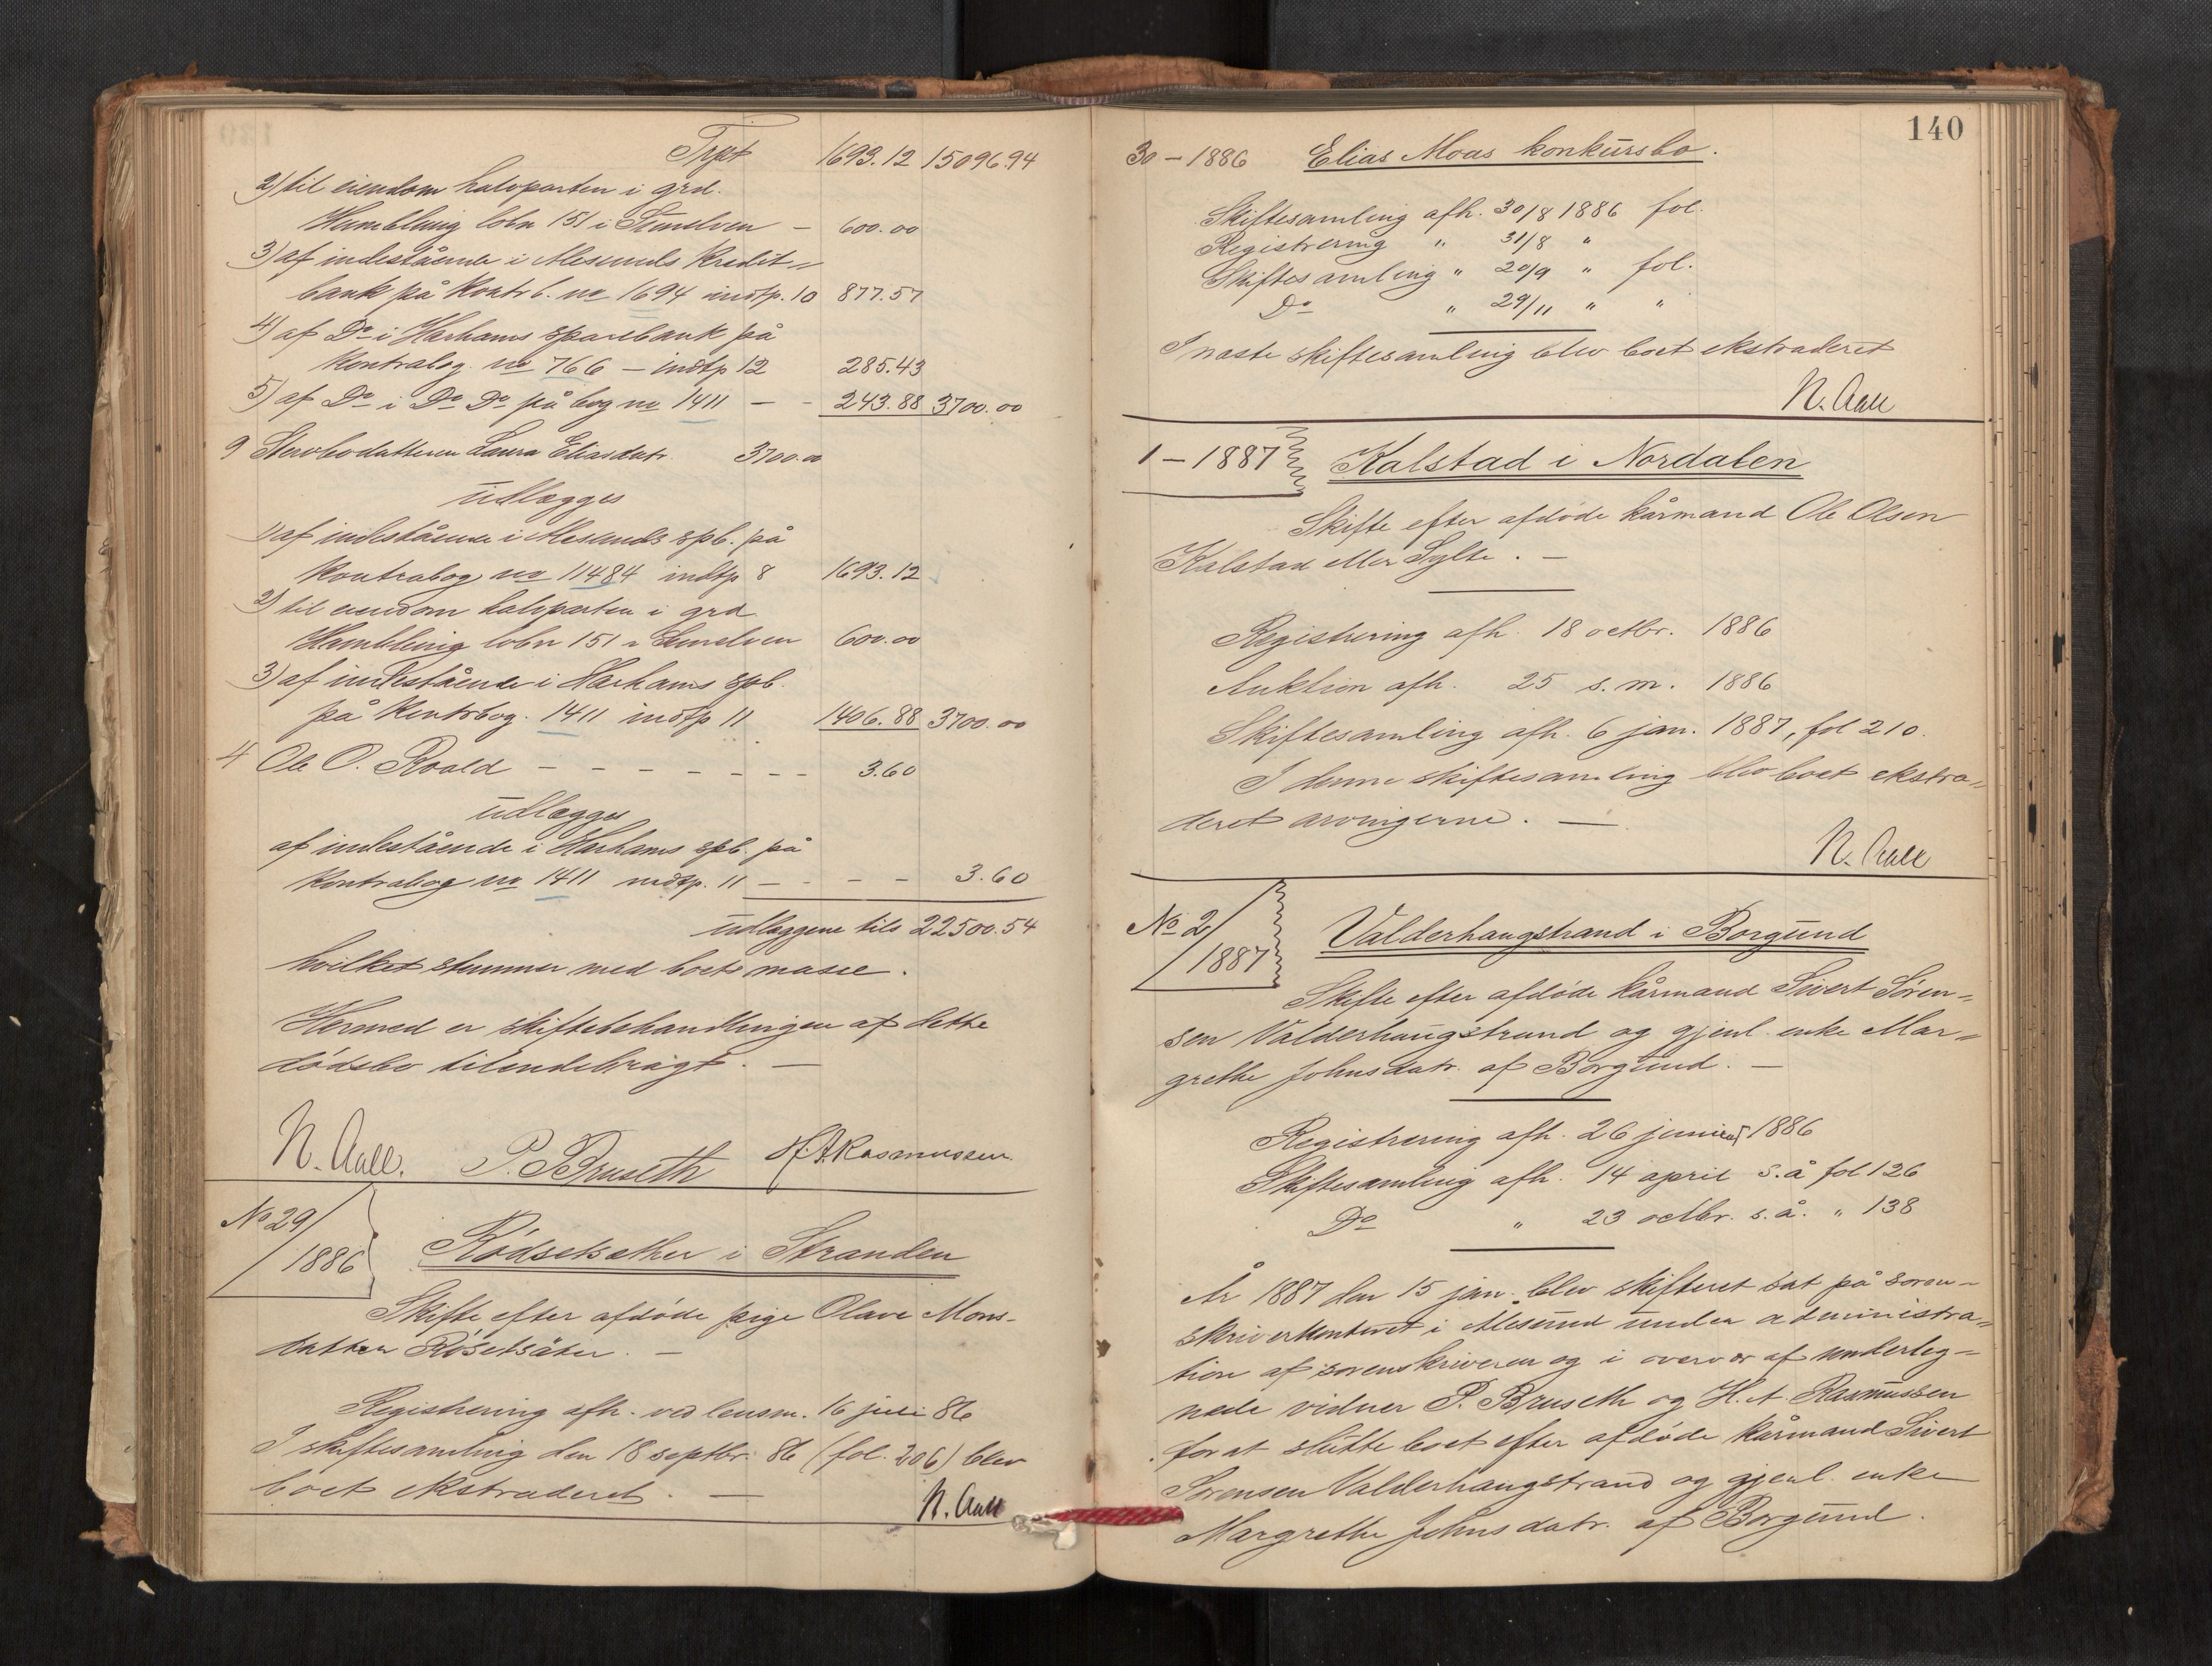 Trpt 1693.12 15096.94
2) til eiendom halvparten i grd.
Humblung lobn 151 i Sunelven — 600.00
3) af indestående i Alesunds Kredit=
bank på Kontrb. no 1694 indtp. 10 877.57
4) af Do i Harhams sparebank på
Kontrabog. no 766 — indtp 12 285.43
5) af Do i Do Do på bog no 1411 — - 243.88 3700.00
9 Stervbodatteren Laura Eliasdatr. 3700.00
udlægges
1) af indestående i Alesunds spb. på
Kontrabog no 11484 indtp 8 1693.12
2) til eiendom halvparten i grd
Humblung lobn 151 i Sunelven 600.00
3) af indestående i Harhams spb.
på Kontrbog. 1411 indtp 11 1406.88 3700.00
4 Ole O. Roald - - - - - - - - 3.60
udlægges
af indestående i Harhams spb. på
Kontrabog no 1411 indtp. 11 — - - - 3.60
udlæggene tils 22500.54
hvilket stemmer med boets masse.
Hermed er skiftebehandlingen af dette
dødsbo tilendebragt. —
N. Aall. P. Bruseth H. A. Rasmussen
No 29/
1886
Rødsetsæther i Stranden
Skifte efter afdøde pige Olave Mons-
datter Røsetsæter. —
Registrering afh. ved lensm. 16 juli 86
I skiftesamling den 18 septbr. 86 (fol. 206) blev
boet ekstraderet. —
N. Aall
140
30 — 1886 Elias Moas konkursbo.
Skiftesamling afh. 30/8 1886 fol.
Registrering " 31/8 "
Skiftesamling " 20/9 " fol.
Do " 29/11 " "
I næste skiftesamling blev boet ekstraderet
N. Aall
1 — 1887 Kalstad i Nordalen
Skifte efter afdøde kårmand Ole Olsen
Kalstad eller Sylte. —
Registrering afh. 18 octbr. 1886
Auktion afh. 25 s. m. 1886
Skiftesamling afh. 6 jan. 1887, fol 210.
I denne skiftesamling blev boet ekstra=
deret arvingerne. —
N. Aall
No 2/
1887
Valderhaugstrand i Borgund
Skifte efter afdøde kårmand Sivert Søren=
sen Valderhaugstrand og gjenl. enke Mar=
grethe Johnsdatr. af Borgund. —
Registrering afh. 26 januar 1886
Skiftesamling afh. 14 april s. å fol 126
Do " 23 octbr. s. å. " 138
År 1887 den 15 jan. blev skifteret sat på soren-
skriverkontoret i Ålesund under administra=
tion af sorenskriveren og i overvær af underteg=
nede vidner P. Bruseth og H. A Rasmussen
for at slutte boet efter afdøde kårmand Sivert
Sørensen Valderhaugstrand og gjenl. enke
Margrethe Johnsdatr. af Borgund.